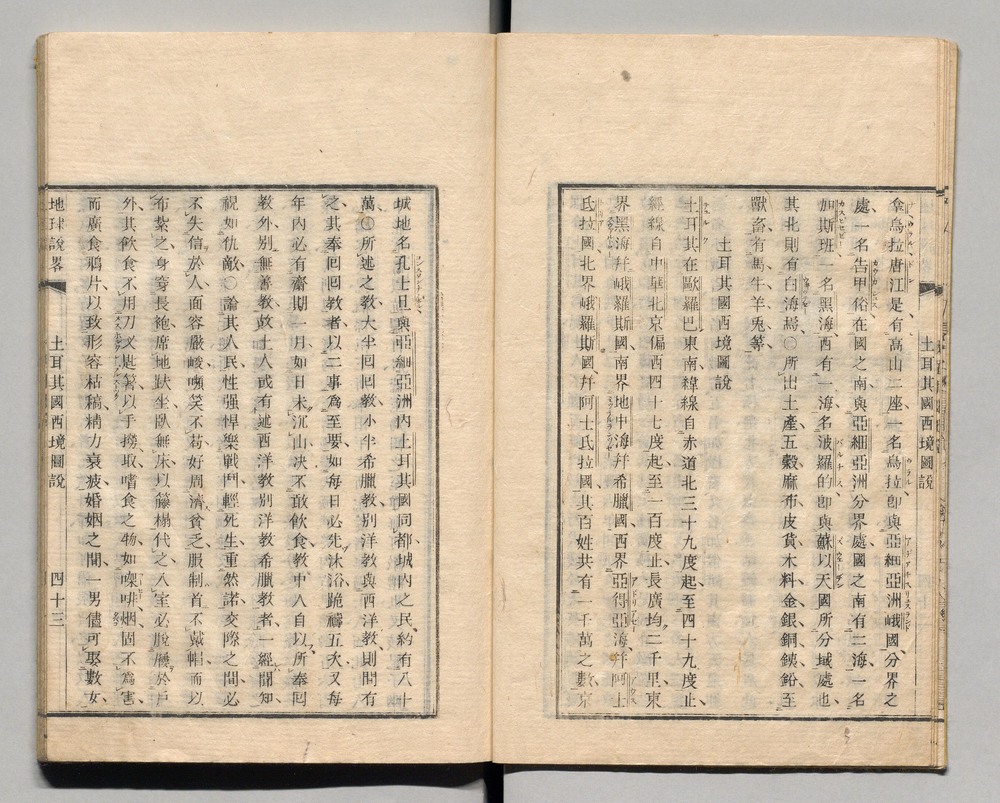 拿烏拉唐江是有高山二座一名烏拉卽與亞細亞洲峨國分界之
處一名告甲俗在國之南與亞細亞洲分界處國之南有二海一名
加斯班一名黑海西有一海名波羅的卽與蘇以天國所分域處也
其北則有白海焉〇所出土產五穀麻布皮貨木料金銀銅鐵鉛至
獸畜有馬牛羊兎等
土耳其國西境圖說
土耳其在歐羅巴東南緯線自赤道北三十九度起至四十九度止
經線自中華北京偏西四十七度起至一百度止長廣均二千里東
界黑海幷峨羅斯國南界地中海幷希臘國西界亞得亞海幷阿士
氏拉國北界峨羅斯國幷阿士氏拉國其百姓共有一千萬之數京
土耳其國西境圖說
城地名孔士旦與亞細亞洲內土耳其國同都城內之民約有八十
萬〇所述之教大半回回教小半希臘教別洋教與西洋教則間有
之其奉回回教者以二事為至要如每日必先沐浴跪禱五次又每
年內必有齋期一月如日未沉山决不敢飲食教中人自以所奉回
教外别無善教故土人或有述西洋教別洋教希臘教者一經聞知
視如仇敵〇論其人民性强悍樂戰鬥輕死生重然諾交際之間必
不失信於人面容嚴峻嘲笑不苟好周濟貧乏服制首不戴帽而以
布紮之身穿長袍席地趺坐臥無床以籐榻代之入室必脫屨於戶
外其飲食不用刀叉匙箸以手撈取嗜食之物如㗎啡烟固不為害
而廣食鴉片以致形容枯稿精力衰疲婚姻之間一男儘可娶數女
地球說畧
土耳其國西境圖說
四十三